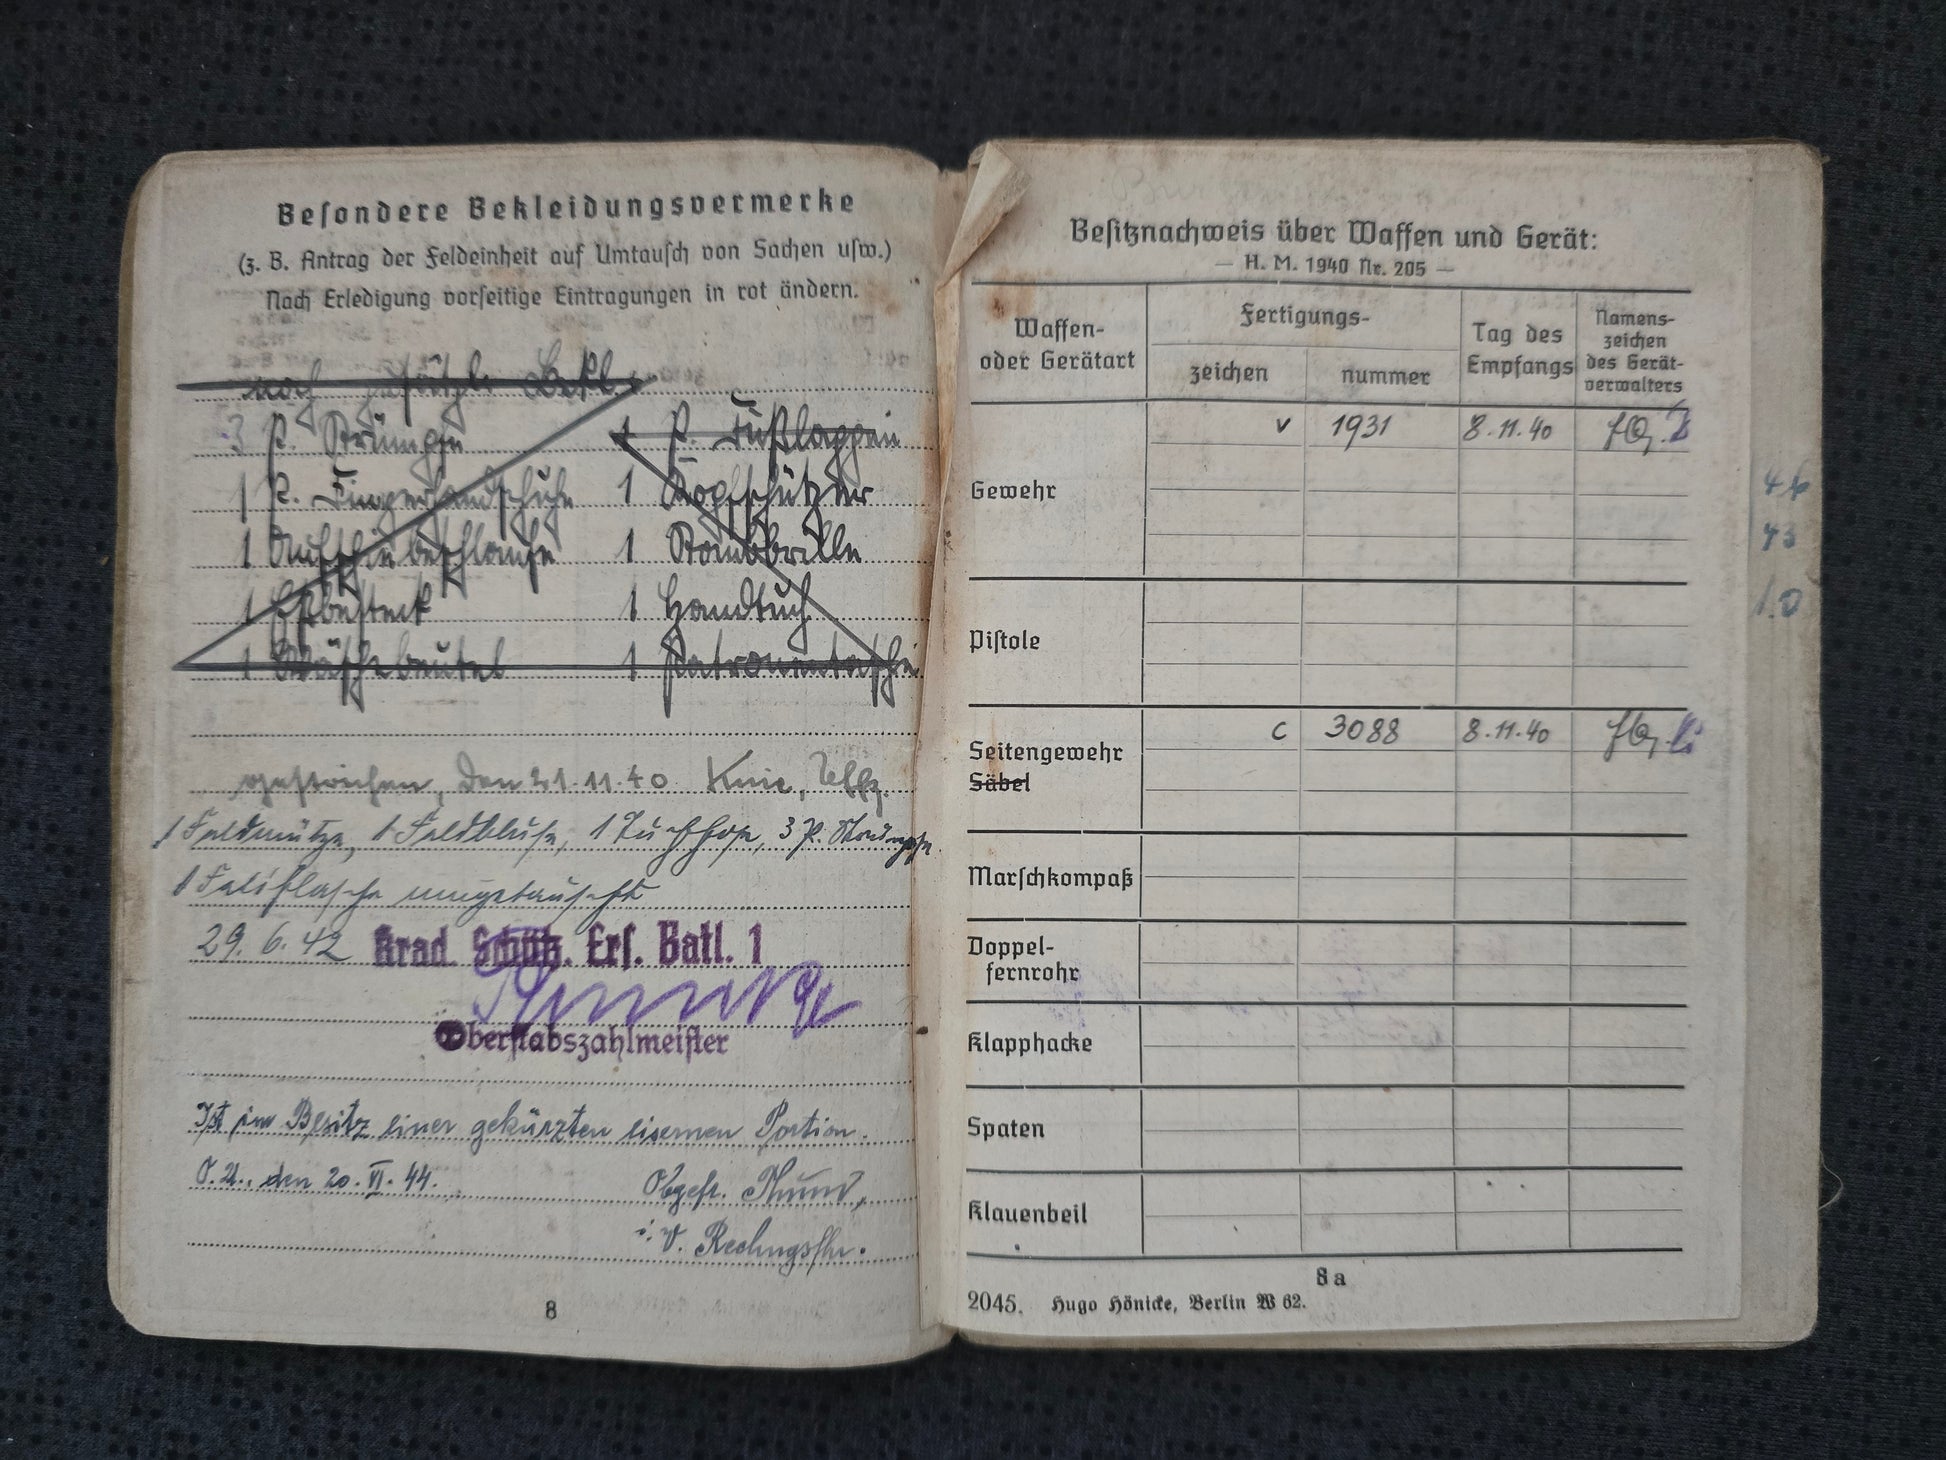 Besondere Bekleidungsvermerke
(z. B. Antrag der Feldeinheit auf Umtausch von Sachen usw.)
Nach Erledigung vorseitige Eintragungen in rot ändern.
noch zusätzl. Bekl.
3 P. Strümpfe 1 P. Fußlappen
1 P. Fingerhandschuhe 1 Kopfschützer
1 Aufschiebeschlaufe 1 Staubbrille
1 Eßbesteck 1 Handtuch
1 Wäschebeutel 1 Patronentasche
gestrichen, den 21.11.40 Knie, Uffz.
1 Feldmütze, 1 Feldbluse, 1 Tuchhose, 3 P. Strümpfe
1 Feldflasche umgetauscht
29. 6. 42 Krad. Schütz. Ers. Batl. 1
Oberstabszahlmeister
Ist im Besitz einer gekürzten eisernen Portion.
O.U., den 20. VI. 44.
Obgefr.
i. V. Rechngsfhr.
8
Besitznachweis über Waffen und Gerät:
— H. M. 1940 Nr. 205 —
Waffen- oder Gerätart
Fertigungs-
zeichen nummer
Tag des Empfangs
Namens-
zeichen
des Gerät-
verwalters
Gewehr v 1931 8.11.40
Pistole
Seitengewehr c 3088 8.11.40
Säbel
Marschkompaß
Doppel-
fernrohr
Klapphacke
Spaten
Klauenbeil
8a
2045. Hugo Hönicke, Berlin W 62.
46
43
1.0